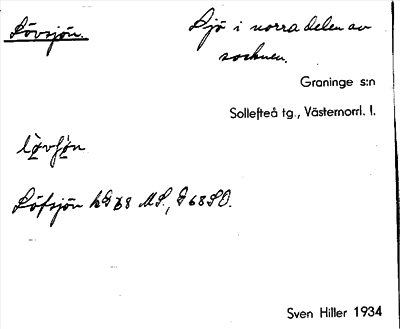 Lövsjön.
Sjö i norra delen av
socknen.
Graninge s:n
Sollefteå tg., Västernorrl. l.
Löfsjön
Sven Hiller 1934